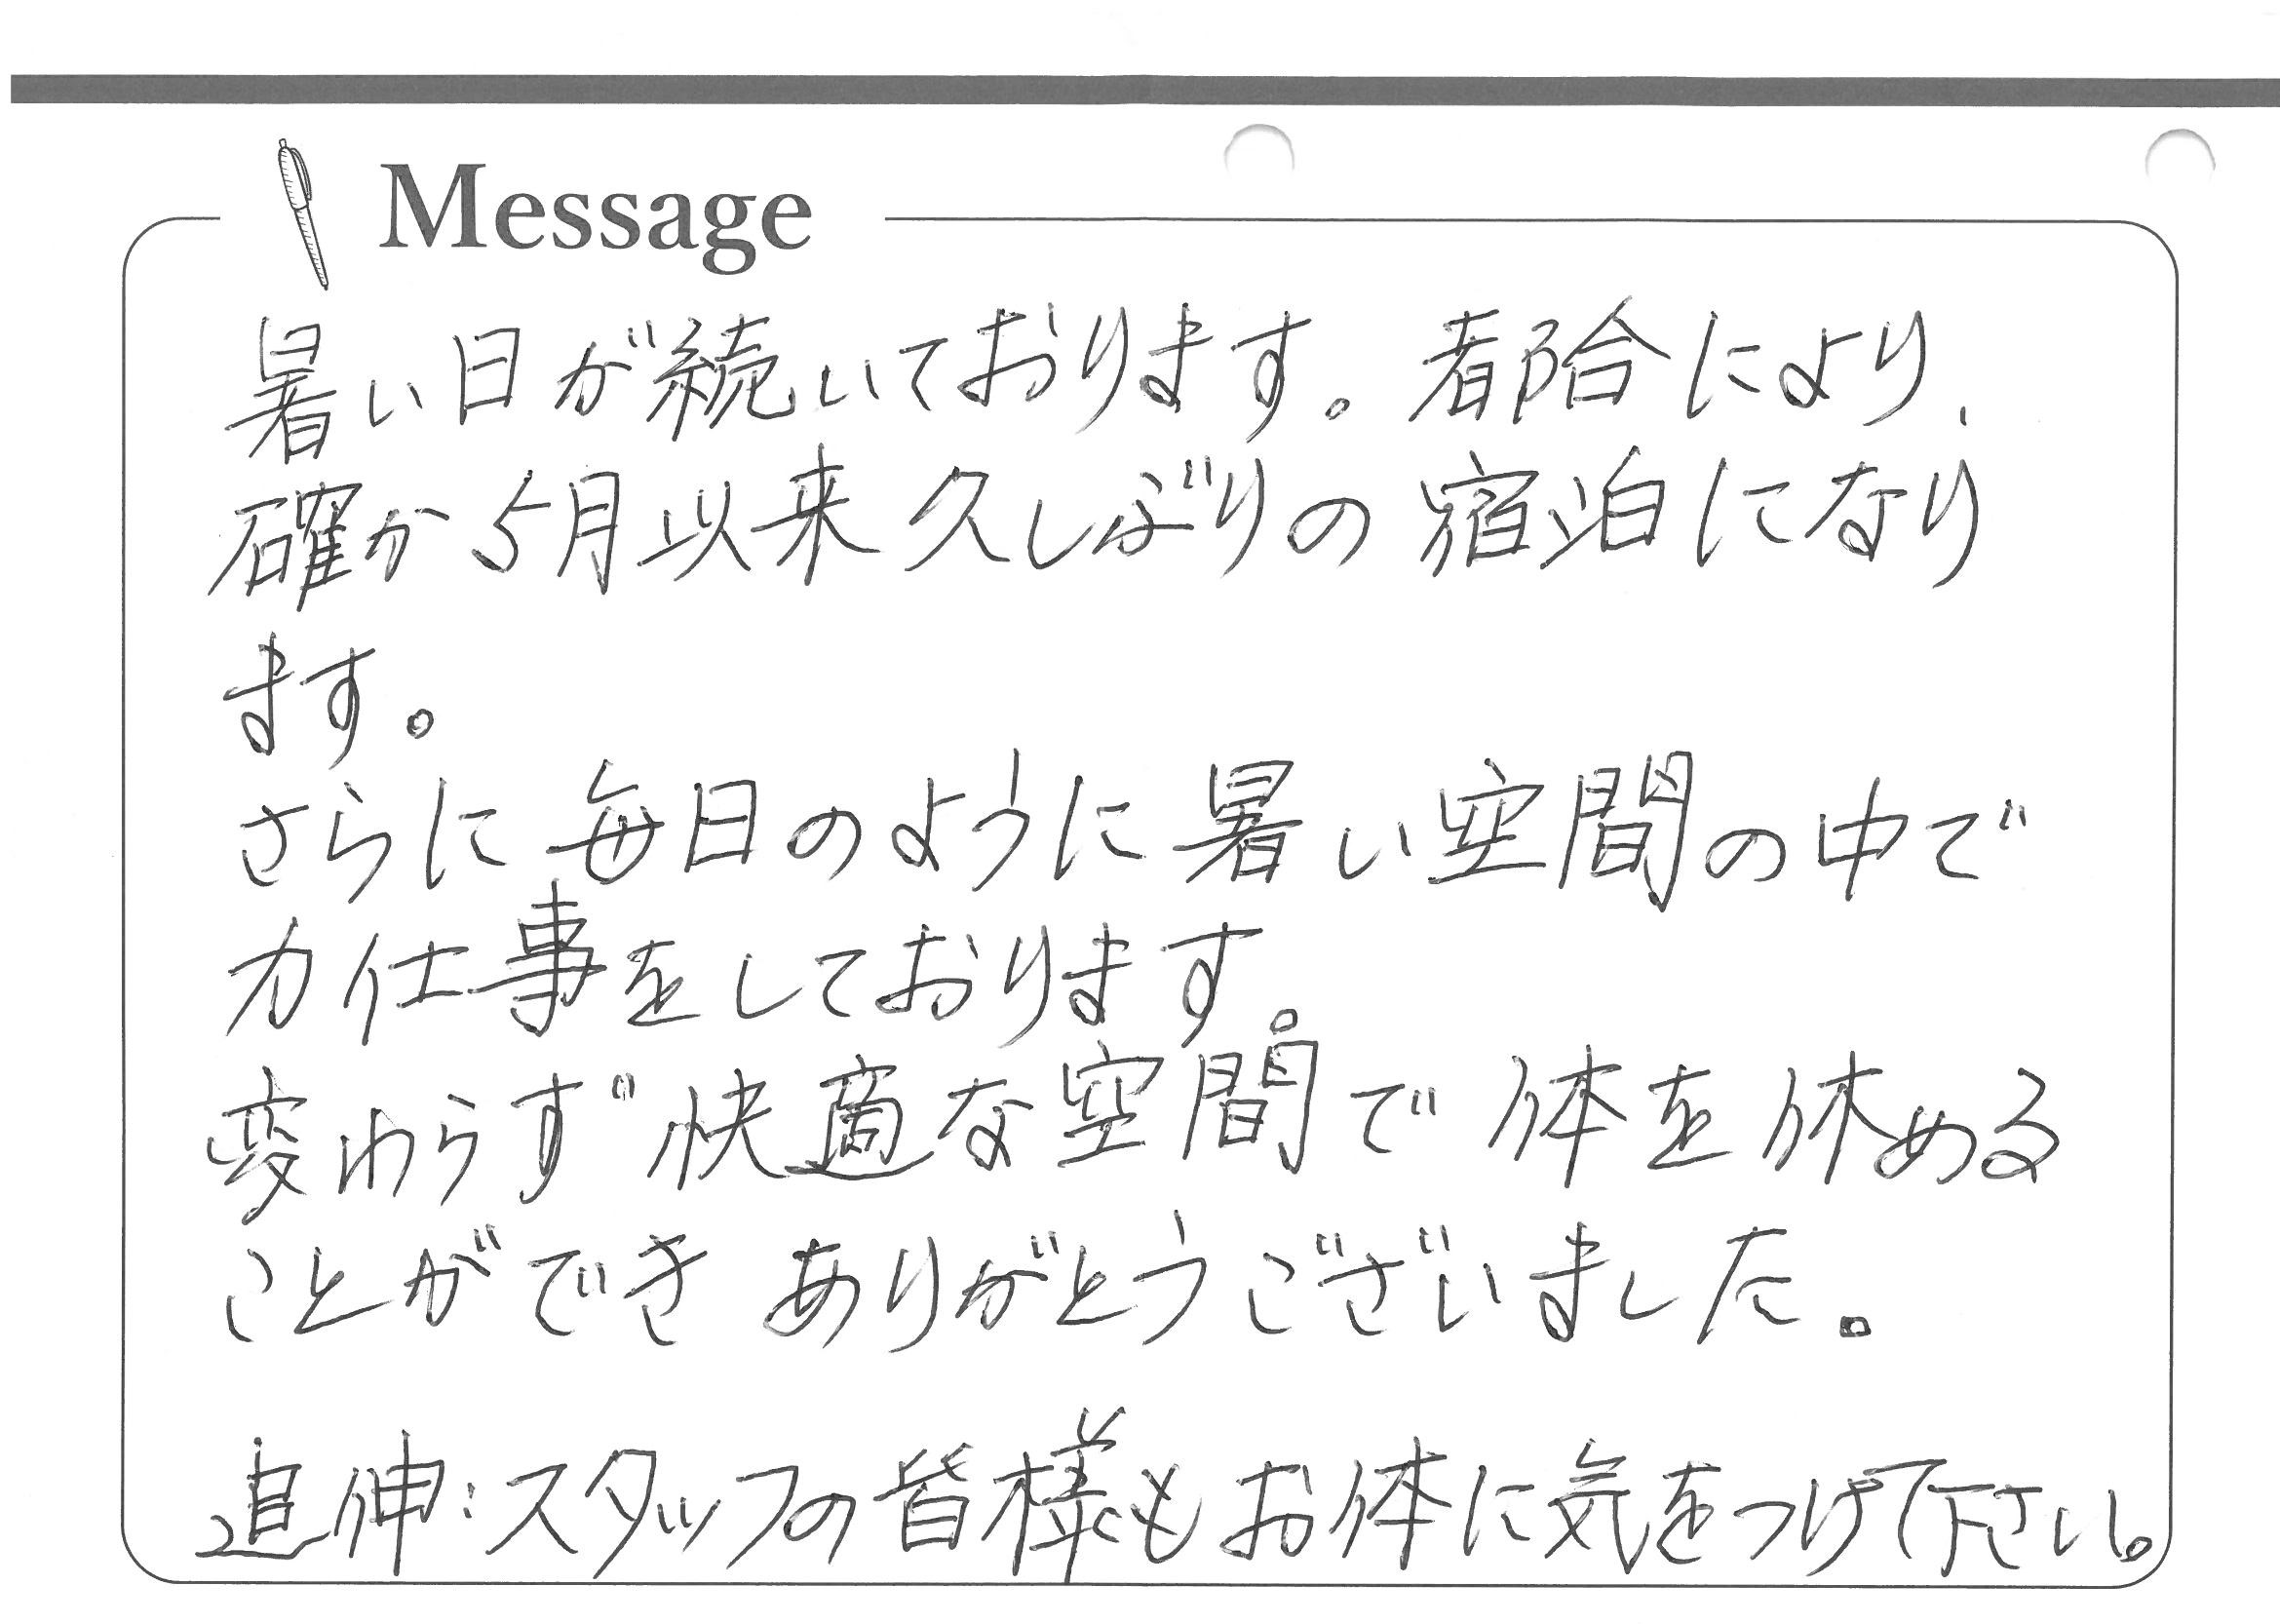 Message
暑い日が続いております。都合により、
確か5月以来久しぶりの宿泊になり
ます。
さらに毎日のように暑い空間の中で
力仕事をしております。
変わらず快適な空間で体を休める
ことができありがとうございました。
追伸:スタッフの皆様もお体に気をつけて下さい。